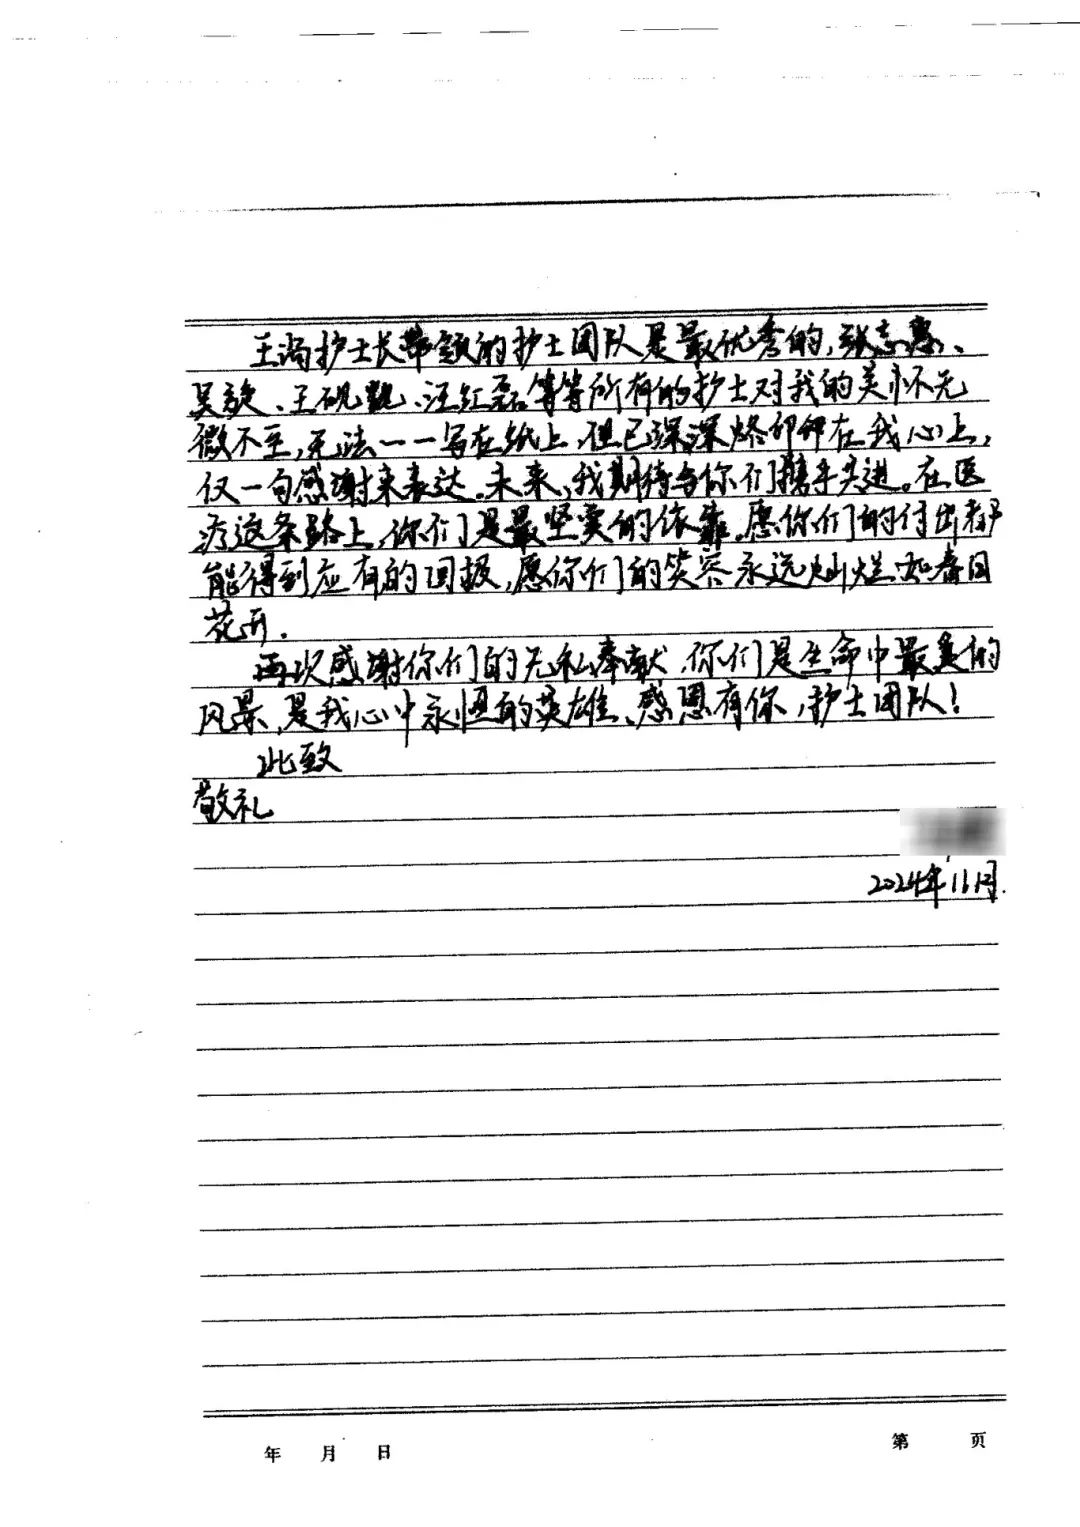 王 护士长带领的护士团队是最优秀的，张志惠、
吴 、王砚 、汪红磊等等所有的护士对我的关怀无
微不至，无法一一写在纸上，但已深深烙印在我心上，
仅一句感谢来表达。未来，我期待与你们携手共进。在医
疗这条路上，你们是最坚实的依靠。愿你们的付出都
能得到应有的回报，愿你们的笑容永远灿烂如春日
花开.
再次感谢你们的无私奉献，你们是生命中最美的
风景，是我心中永恒的英雄、感恩有你，护士团队！
此致
敬礼
2024年11月.
年 月 日
第 页